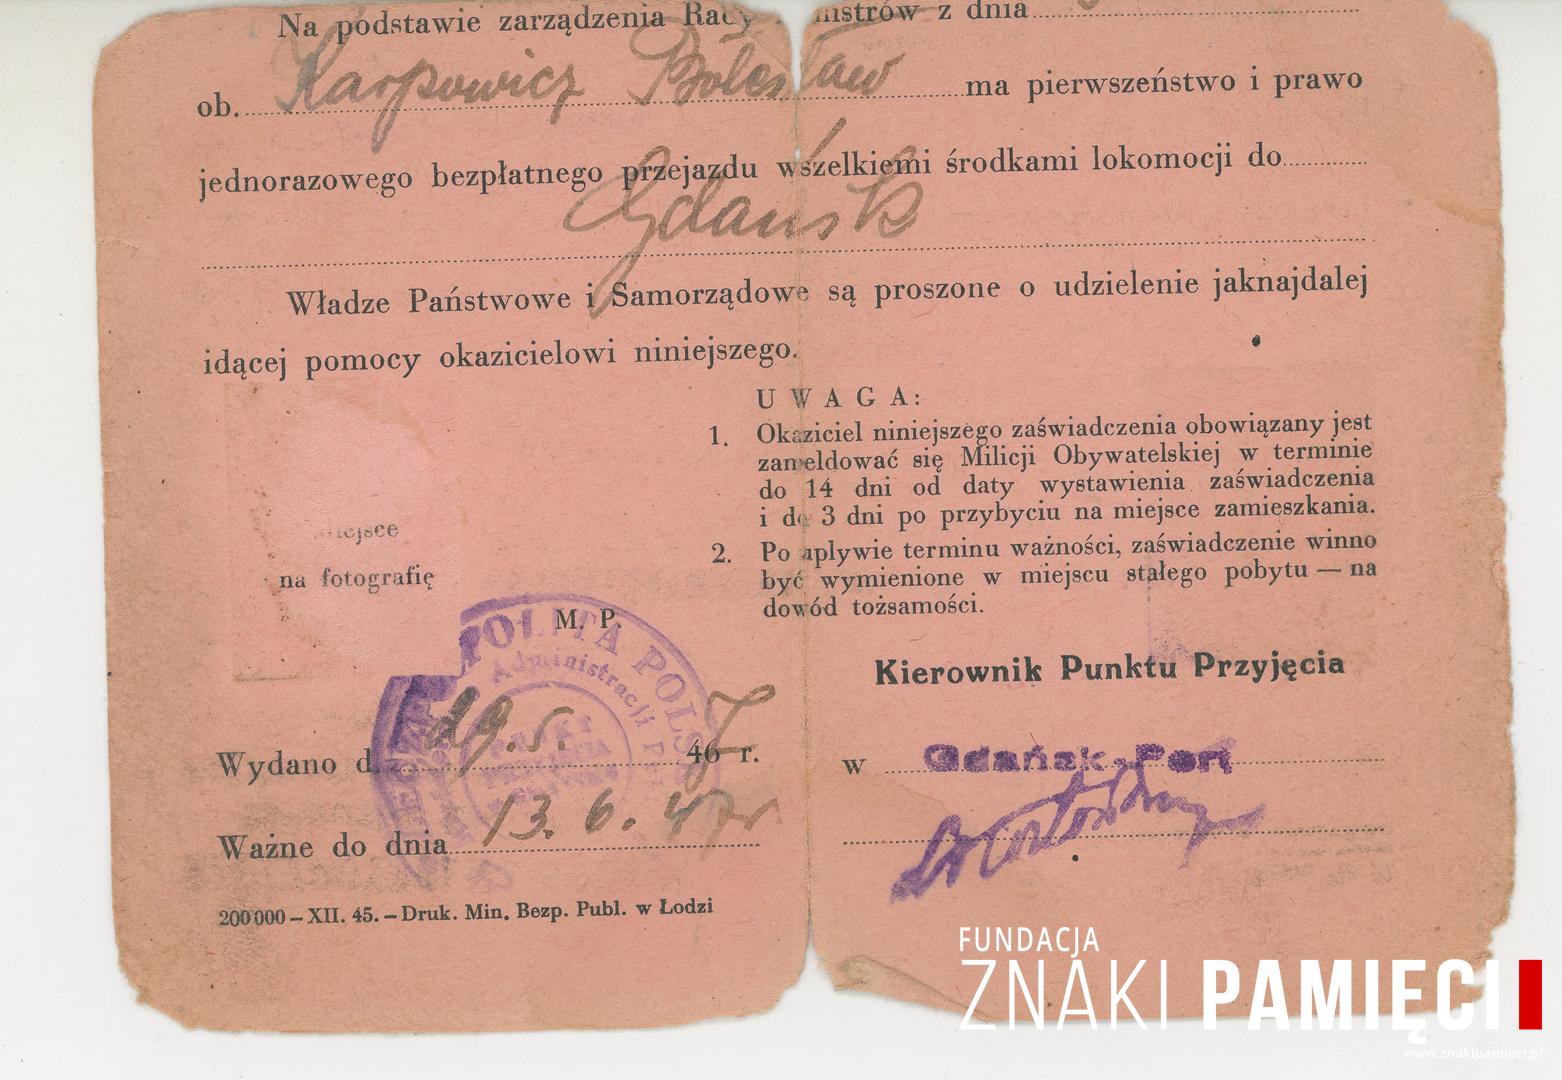 Na podstawie zarządzenia Rady z dnia
ob. Karpowicz Bolesław ma pierwszeństwo i prawo
jednorazowego bezpłatnego przejazdu wszelkiemi środkami lokomocji do
Gdańsk
Władze Państwowe i Samorządowe są proszone o udzielenie jaknajdalej
idącej pomocy okazicielowi niniejszego.
UWAGA:
1. Okaziciel niniejszego zaświadczenia obowiązany jest
zameldować się Milicji Obywatelskiej w terminie
do 14 dni od daty wystawienia zaświadczenia
i do 3 dni po przybyciu na miejsce zamieszkania.
2. Po uplywie terminu ważności, zaświadczenie winno
być wymienione w miejscu stałego pobytu — na
dowód tożsamości.
miejsce
na fotografię
M. P.
POLITA POLSK
Administracji
Kierownik Punktu Przyjęcia
Wydano d. 29.5. 47 r.
w Gdańsk-Port
Ważne do dnia 13.6.47r
200 000 – XII. 45. – Druk. Min. Bezp. Publ. w Łodzi
FUNDACJA
ZNAKI PAMIĘCI
www.znakipamieci.pl